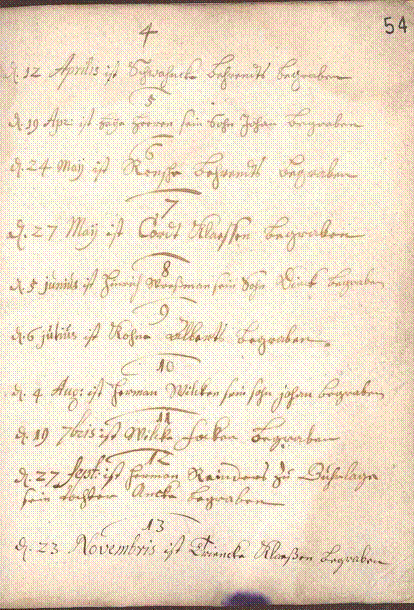 54
4
d. 12 Aprilis ist Behrendts begraben
5
d. 19 Apr ist Herren sein Sohn Johan begraben
6
d. 24 Maij ist Behrendts begraben
7
d. 27 Maij ist Cordt Klaessen begraben
8
d. 5 junius ist Hinrich sein Sohn Dirk begraben
9
d. 6 julius ist Alberts begraben
10
d. 4 Aug: ist Herman Wilcken sein sohn johan begraben
11
d. 19 7bris ist Wilcke Focken begraben
12
d. 27 Sept: ist Herman Reinders zu
sein tochter Ancke begraben
13
d. 23 Novembris ist Triencke Klaeßen begraben